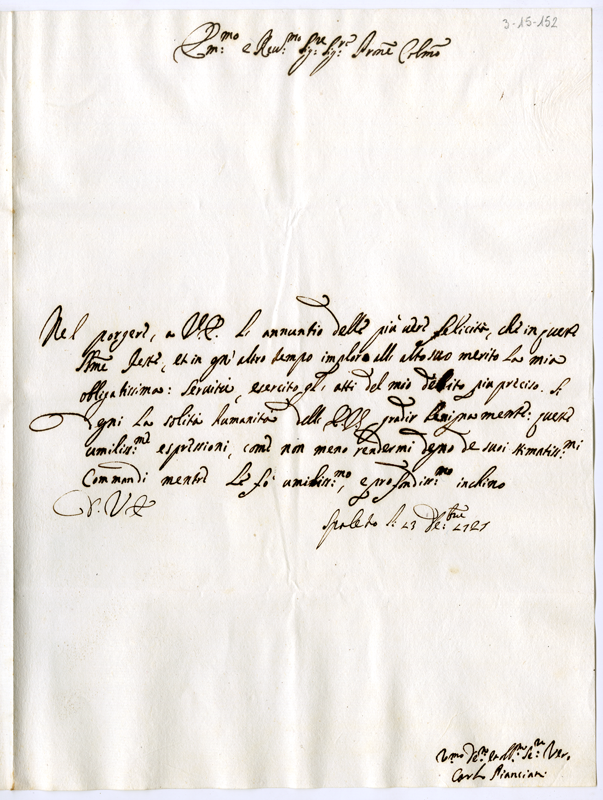 3-15-152
Em:mo e Reu:mo Sig:re Sig:re Prone Colmo
Nel porgere, a V.E. L'annuntio delle più uere felicità, che in queste
Ste Feste, et in gn'altro tempo imploro all'alto suo merito La mia
obligatissima: seruitù, esercito gl'atti del mio debito più preciso. Si
gni La solita humanità dell' E.V. gradir benignamente: queste
umiliss:me espressioni, come non meno rendermi degno de suoi stimatiss:mi
Commandi mentre Le fo' umiliss:mo, e profondiss:mo inchino
D. V.E.
Spoleto li: 23 De:bre 1727
Carlo Pianciani